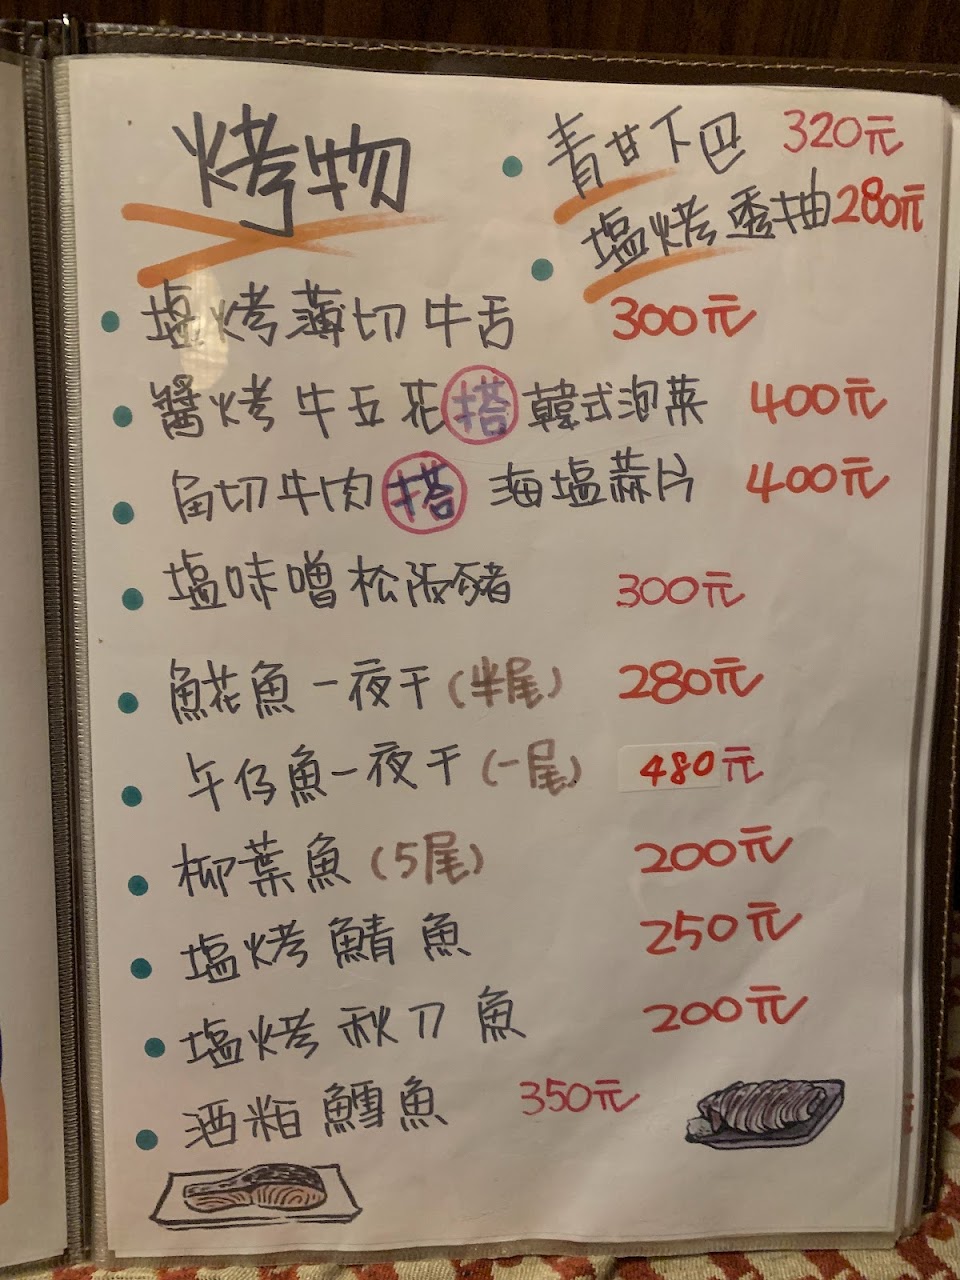 烤物
青甘下巴 320元
塩烤透抽 280元
塩烤薄切牛舌 300元
醬烤牛五花搭韓式泡菜 400元
角切牛肉搭海塩蒜片 400元
塩味噌松阪豬 300元
鮭花魚一夜干(半尾) 280元
午仔魚一夜干(一尾) 480元
柳葉魚(5尾) 200元
塩烤鯖魚 250元
塩烤秋刀魚 200元
酒粕鱈魚 350元